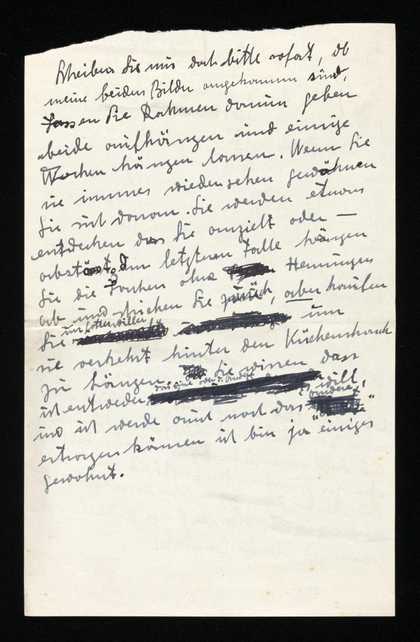 Schreiben Sie mir doch bitte sofort, ob
meine beiden Bilder angekommen sind,
lassen Sie Rahmen darum geben
beide aufhängen und einige
Wochen hängen lassen. Wenn Sie
sie immer wieder sehen gewöhnen
Sie sich daran. Sie werden etwas
entdecken das Sie anzieht oder —
abstösst. Im letzteren Falle hängen
Sie die Farben ohne Hemmungen
ab und schicken Sie zurück, aber kaufen
Sie um Gotteswillen, um
sie verkehrt hinter den Küchenschrank
zu hängen. Sie wissen dass
ich entweder das eine oder das will,
und ich werde auch noch das "andere"
ertragen können ich bin ja einiges
gewohnt.